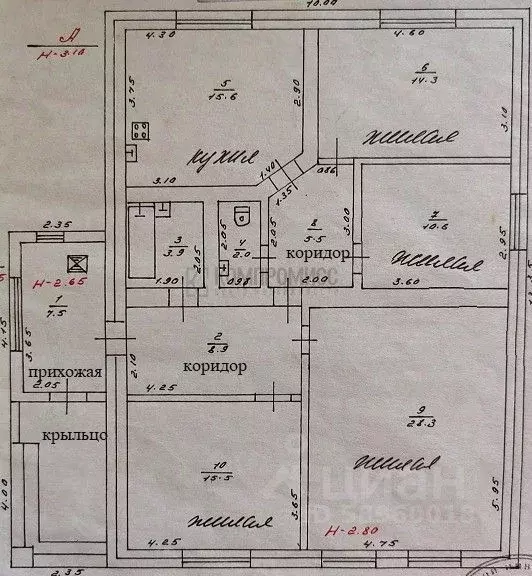 10.00
А
Н-3.10
4.30
4.60
3.75
5
15.6
2.90
6
14.3
3.10
кухня
жилая
3.10
1.40
1.35
086
2.35
3
3.9
2.05
2.05
4
2.0
2.05
8
5.5
коридор
3.00
7
10.6
жилая
2.95
КОМПРОМИСС
Н-2.65
1
7.5
4.15
3.65
1.90
098
2.00
3.60
прихожая
2.05
2.10
2
8.9
коридор
4.25
9
28.3
крыльцо
4.00
10
15.5
жилая
3.65
жилая
5.95
циан
Н-2.80
2.35
4.25
4.75